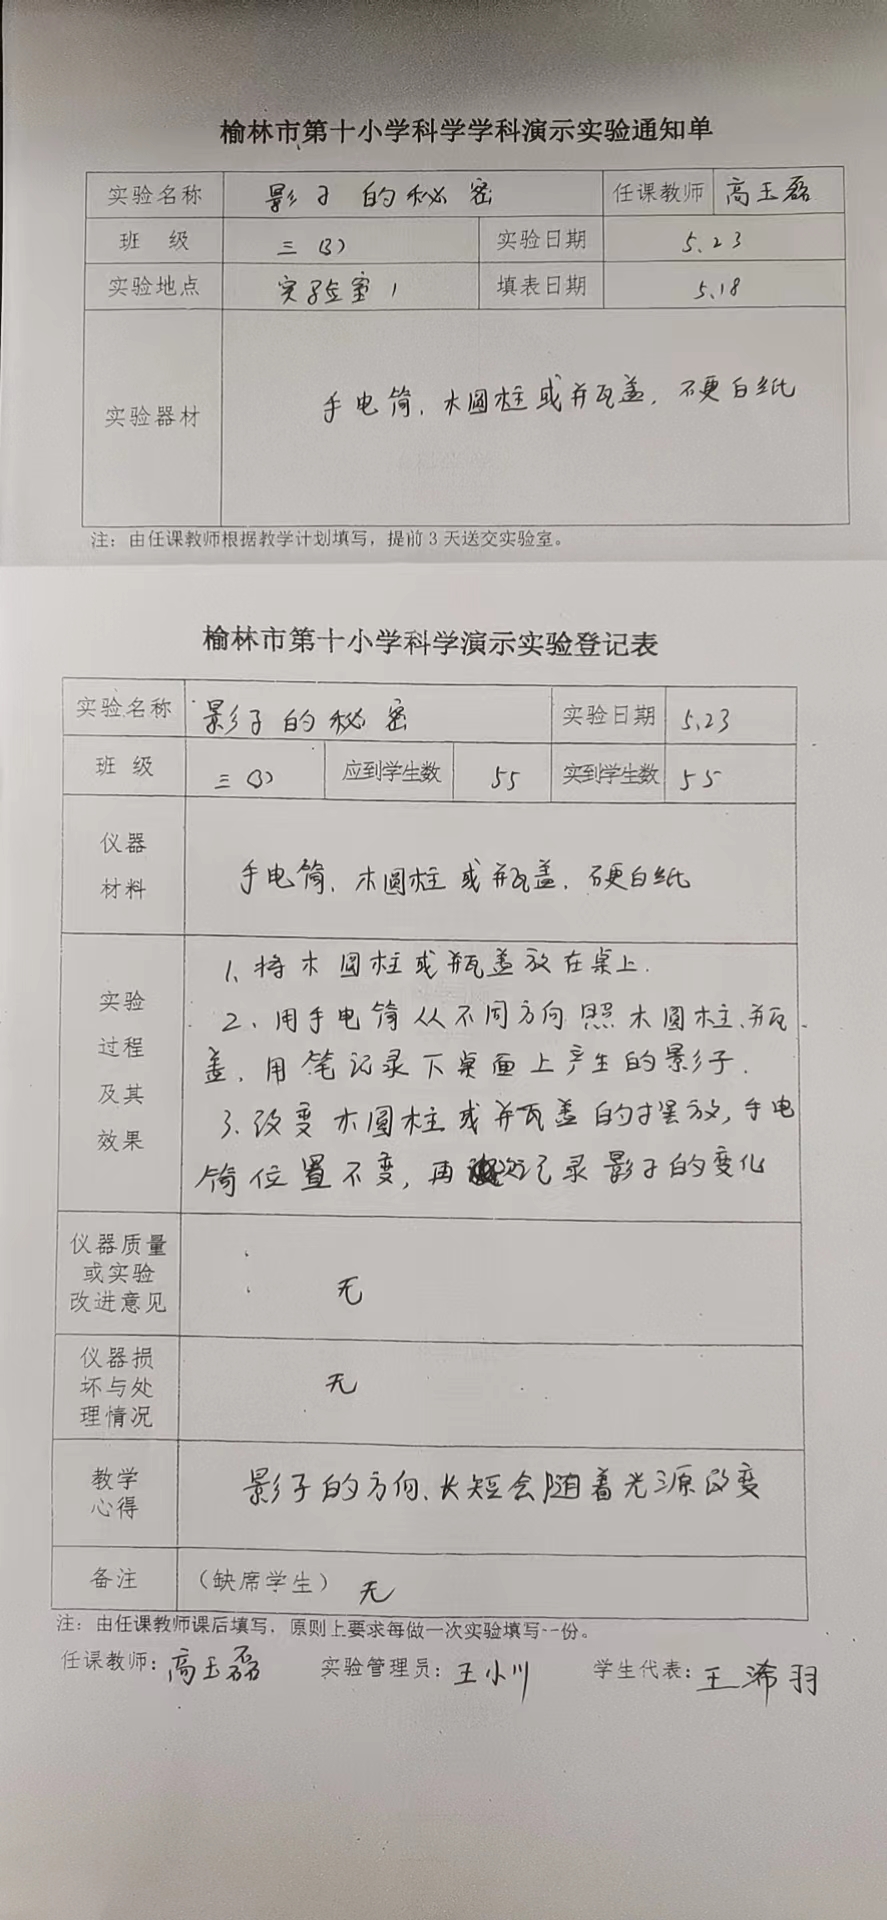 榆林市第十小学科学学科演示实验通知单
实验名称 影子的秘密 任课教师 高玉磊
班 级 三(3) 实验日期 5.23
实验地点 实验室1 填表日期 5.18
实验器材 手电筒、木圆柱或瓶盖、硬白纸
注：由任课教师根据教学计划填写，提前3天送交实验室。
榆林市第十小学科学演示实验登记表
实验名称 影子的秘密 实验日期 5.23
班 级 三(3) 应到学生数 55 实到学生数 55
仪器
材料
手电筒、木圆柱或瓶盖、硬白纸
实验
过程
及其
效果
1、将木圆柱或瓶盖放在桌上.
2、用手电筒从不同方向照木圆柱、瓶
盖、用笔记录下桌面上产生的影子.
3、改变木圆柱或瓶盖的摆放，手电
筒位置不变，再次记录影子的变化
仪器质量
或实验
改进意见
无
仪器损
坏与处
理情况
无
教学
心得
影子的方向、长短会随着光源改变
备注 （缺席学生） 无
注：由任课教师课后填写，原则上要求每做一次实验填写一份。
任课教师：高玉磊 实验管理员：王小川 学生代表：王浠羽